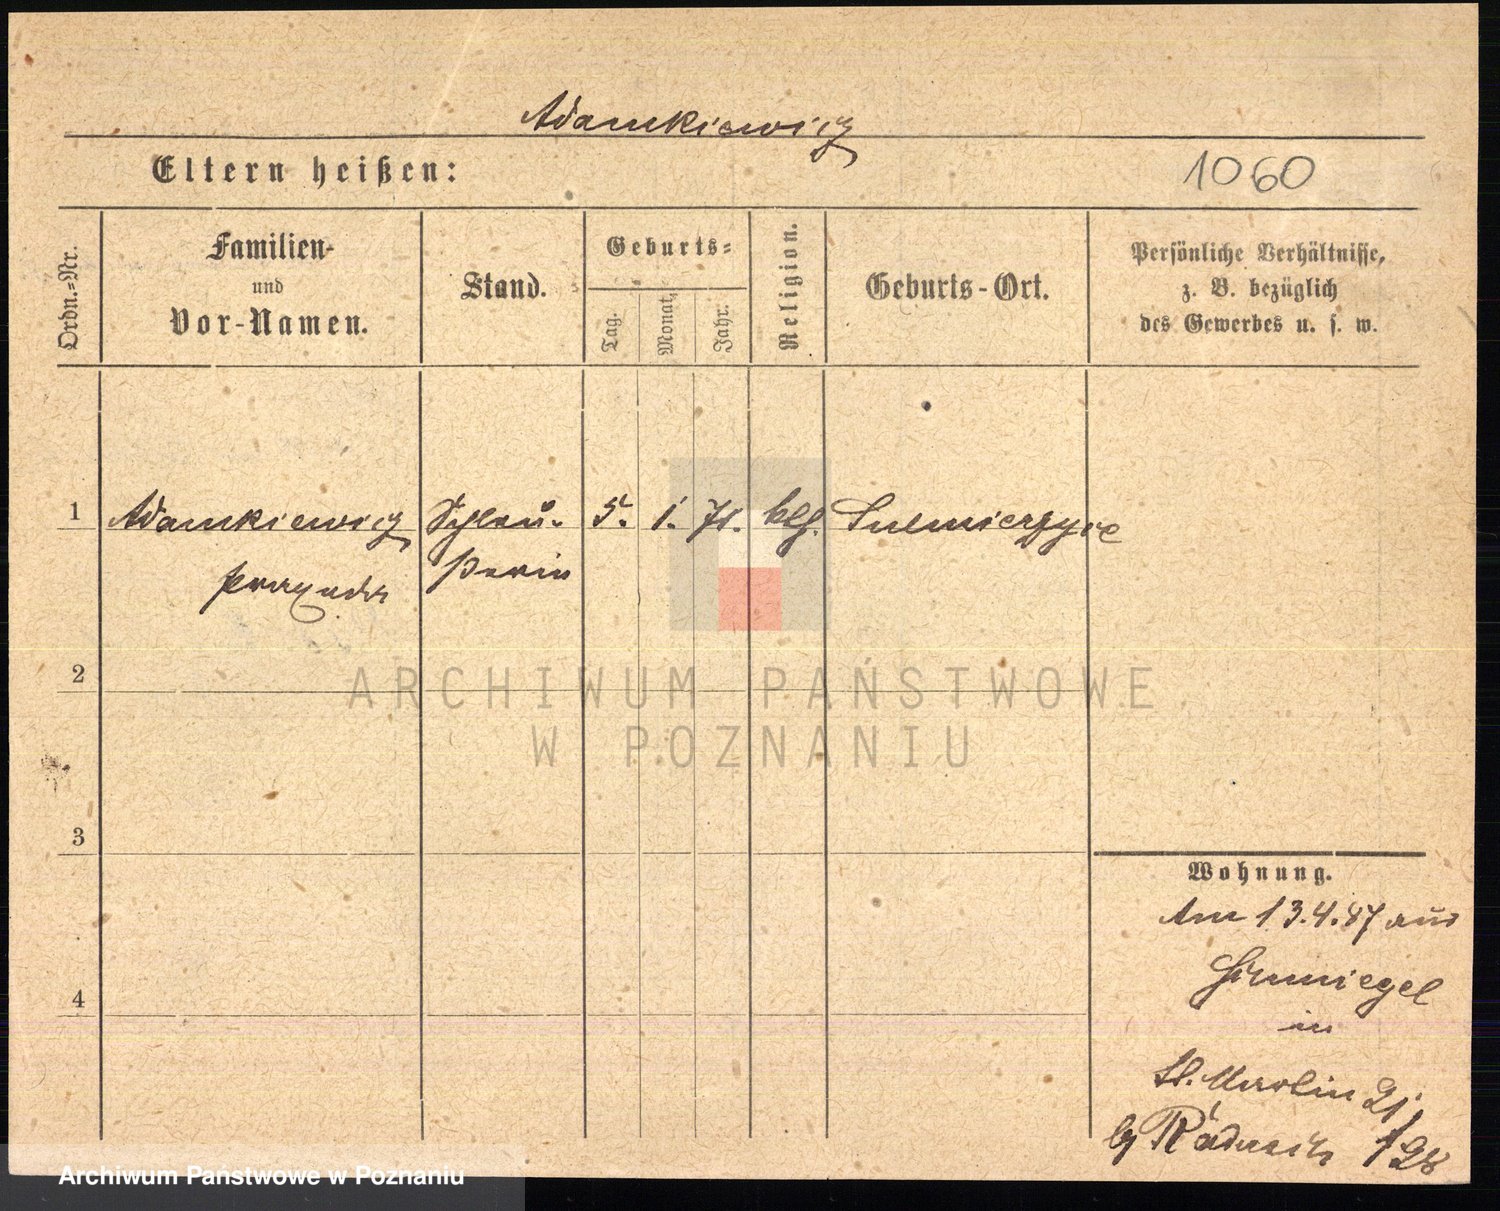 Adamkiewicz
Eltern heißen:
1060
Ordn.-Nr.
Familien-
und
Vor-Namen.
Stand.
Geburts-
Tag.
Monat.
Jahr.
Religion.
Geburts-Ort.
Persönliche Verhältnisse,
z. B. bezüglich
des Gewerbes u. s. w.
1
Adamkiewicz
Praxeda
5. 1. 71. kth. Sulmierzyce
2
3
4
Wohnung.
Am 13.4.87 aus
Schmiegel
in
St. Martin 21
ARCHIWUM PAŃSTWOWE
W POZNANIU
Archiwum Państwowe w Poznaniu